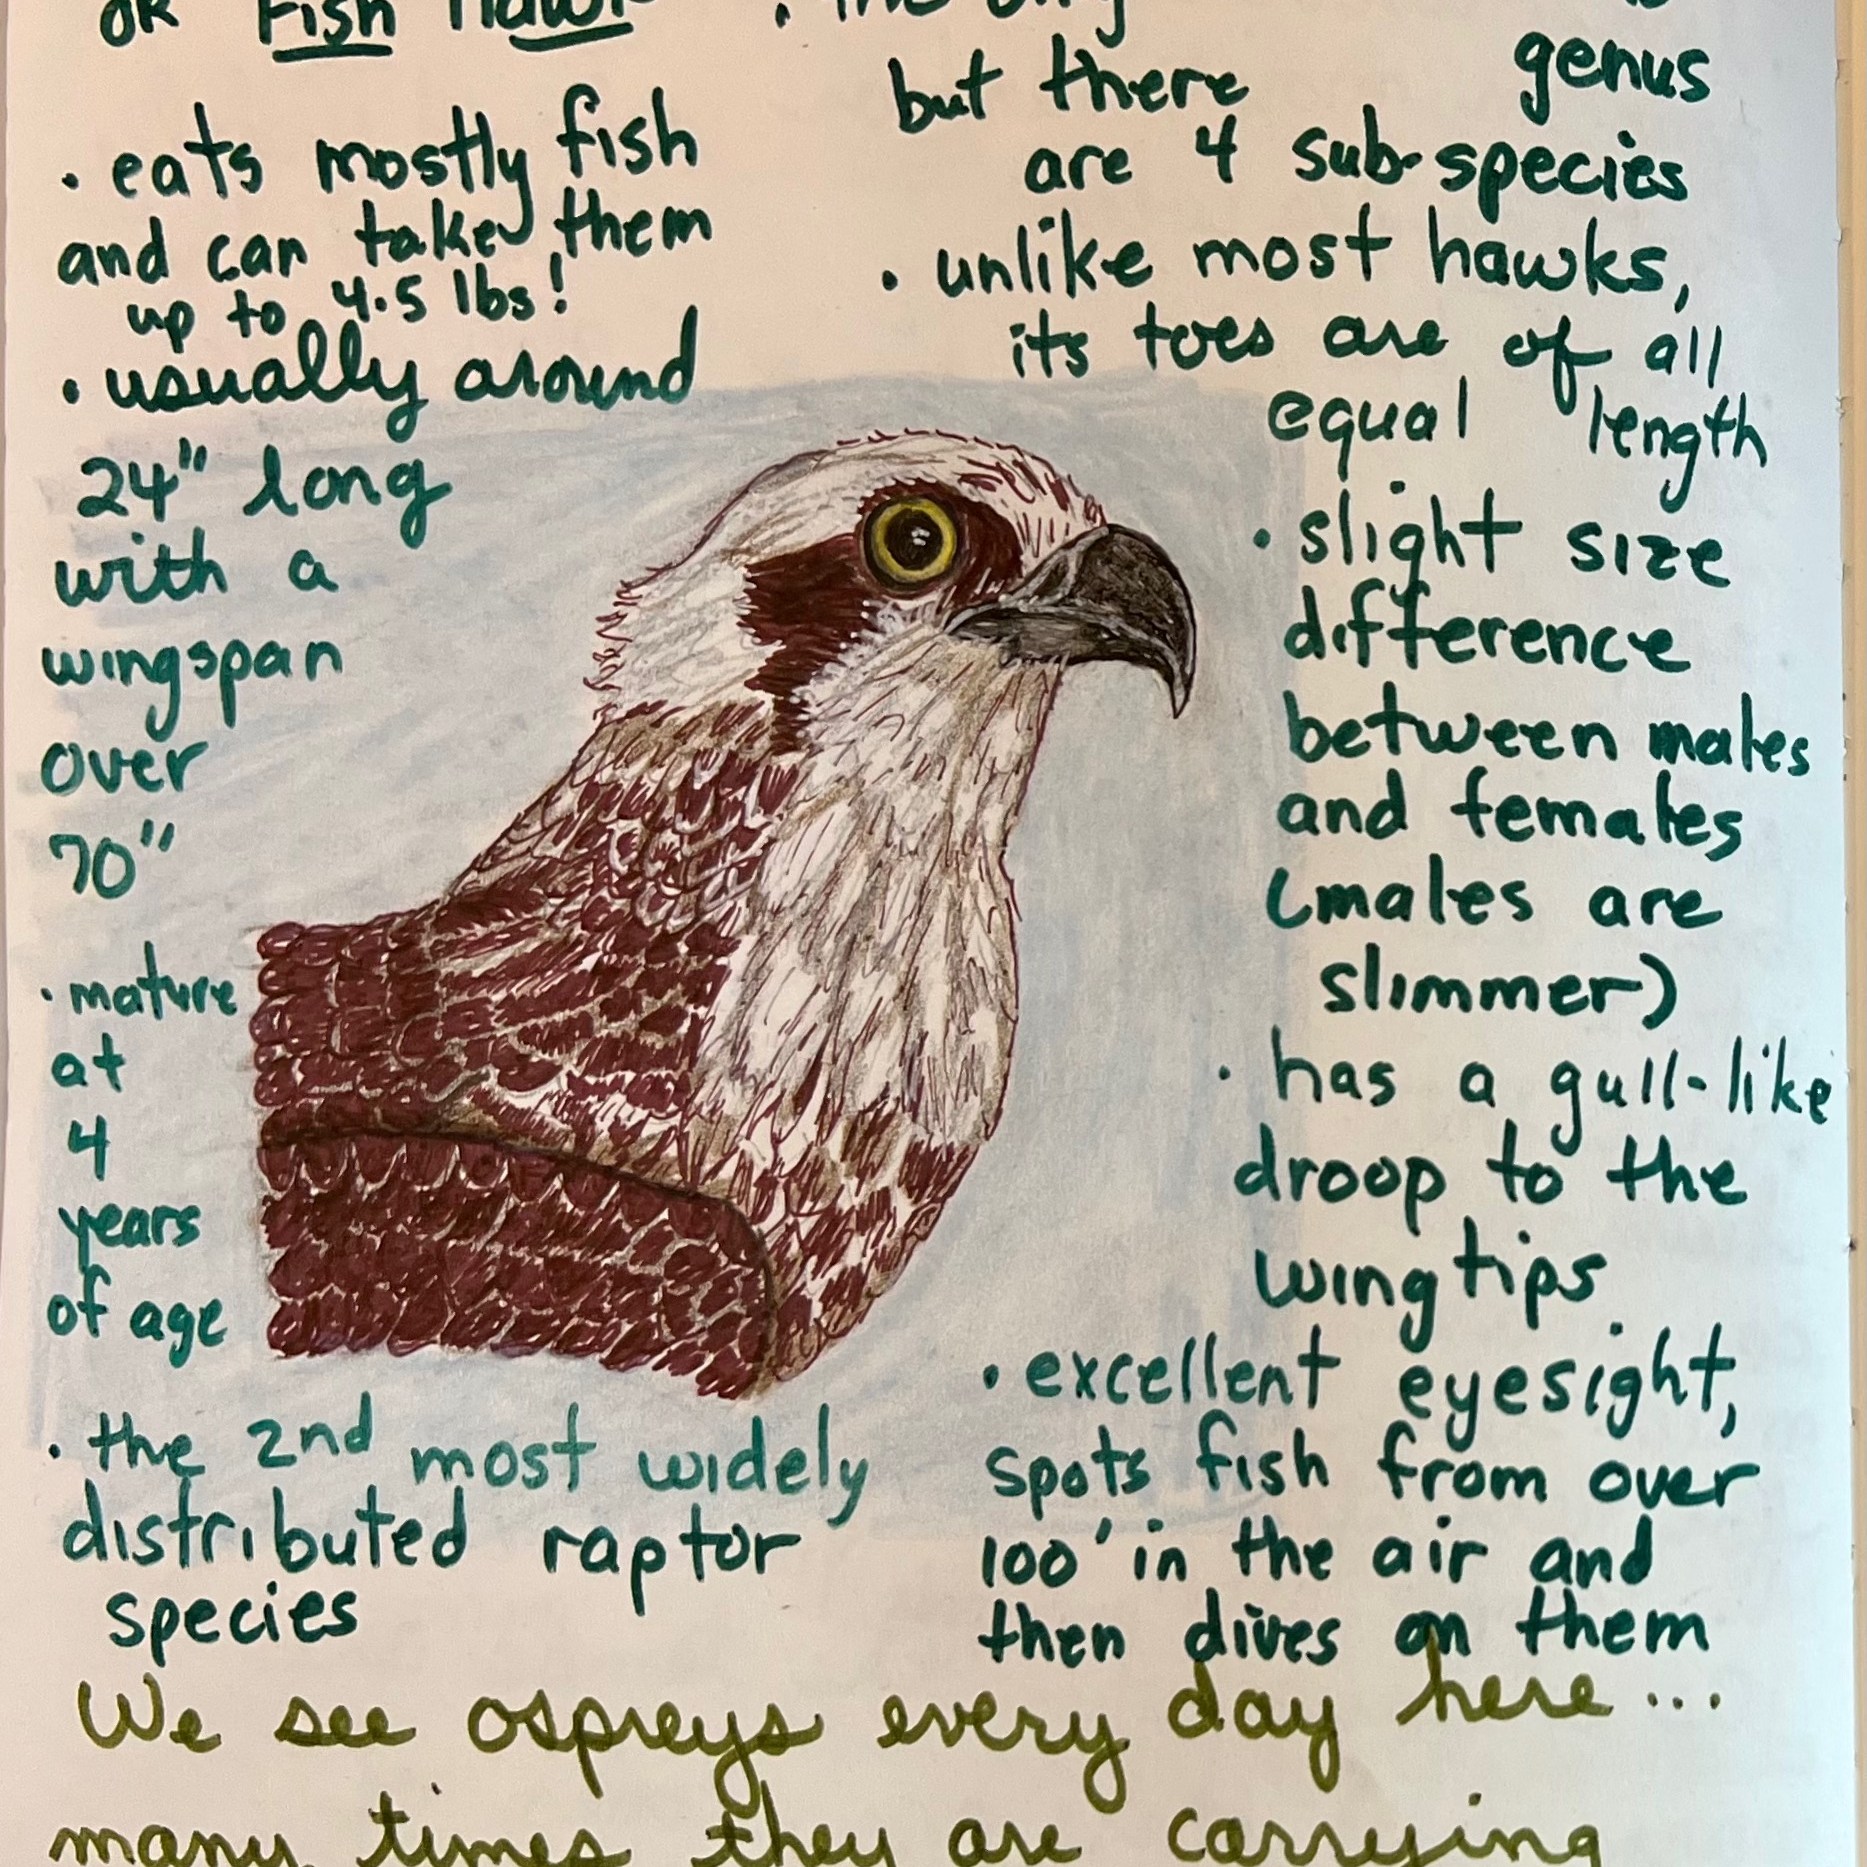 or Fish Hawk
• eats mostly fish
and can take them
up to 4.5 lbs!
• usually around
24" long
with a
wingspan
over
70"
• mature
at
4
years
of age
• the 2nd most widely
distributed raptor
species
• the only
genus
but there
are 4 sub-species
• unlike most hawks,
its toes are of all
equal length
• slight size
difference
between males
and females
(males are
slimmer)
• has a gull-like
droop to the
wing tips
• excellent eyesight,
spots fish from over
100' in the air and
then dives on them
We see ospreys every day here...
many times they are carrying